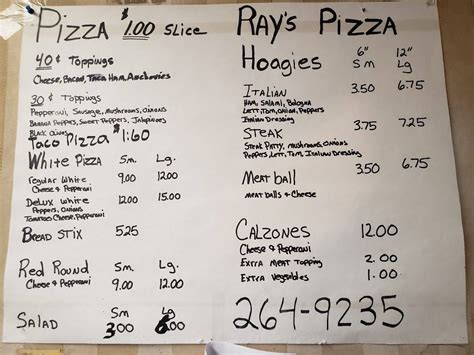 Pizza $1.00 Slice
40¢ Toppings
Cheese, Bacon, Taco Ham, Anchovies
30¢ Toppings
Pepperoni, Sausage, Mushrooms, Onions
Banana Peppers, Sweet Peppers, Jalapinos
Black Olives
Taco Pizza $1:60
White Pizza Sm. Lg.
Regular White 9.00 12.00
Cheese & Pepperoni
Delux White 12.00 15.00
Peppers, Onions
Tomatoes Cheese, Pepperoni
Bread Stix 5.25
Red Round Sm. Lg.
Cheese & Pepperoni 9.00 12.00
Sm Lg
Salad 3.00 6.00
Ray's Pizza
Hoagies 6" Sm 12" Lg
Italian 3.50 6.75
Ham, Salami, Bologna
Lett, Tom, Onion, Peppers
Italian Dressing
Steak 3.75 7.25
Steak Patty, Mushrooms, Onions
Peppers Lett, Tom, Italian Dressing
Meat ball 3.50 6.75
Meat balls & Cheese
Calzones 12.00
Cheese & Pepperoni
Extra Meat Topping 2.00
Extra Vegetables 1.00
264-9235